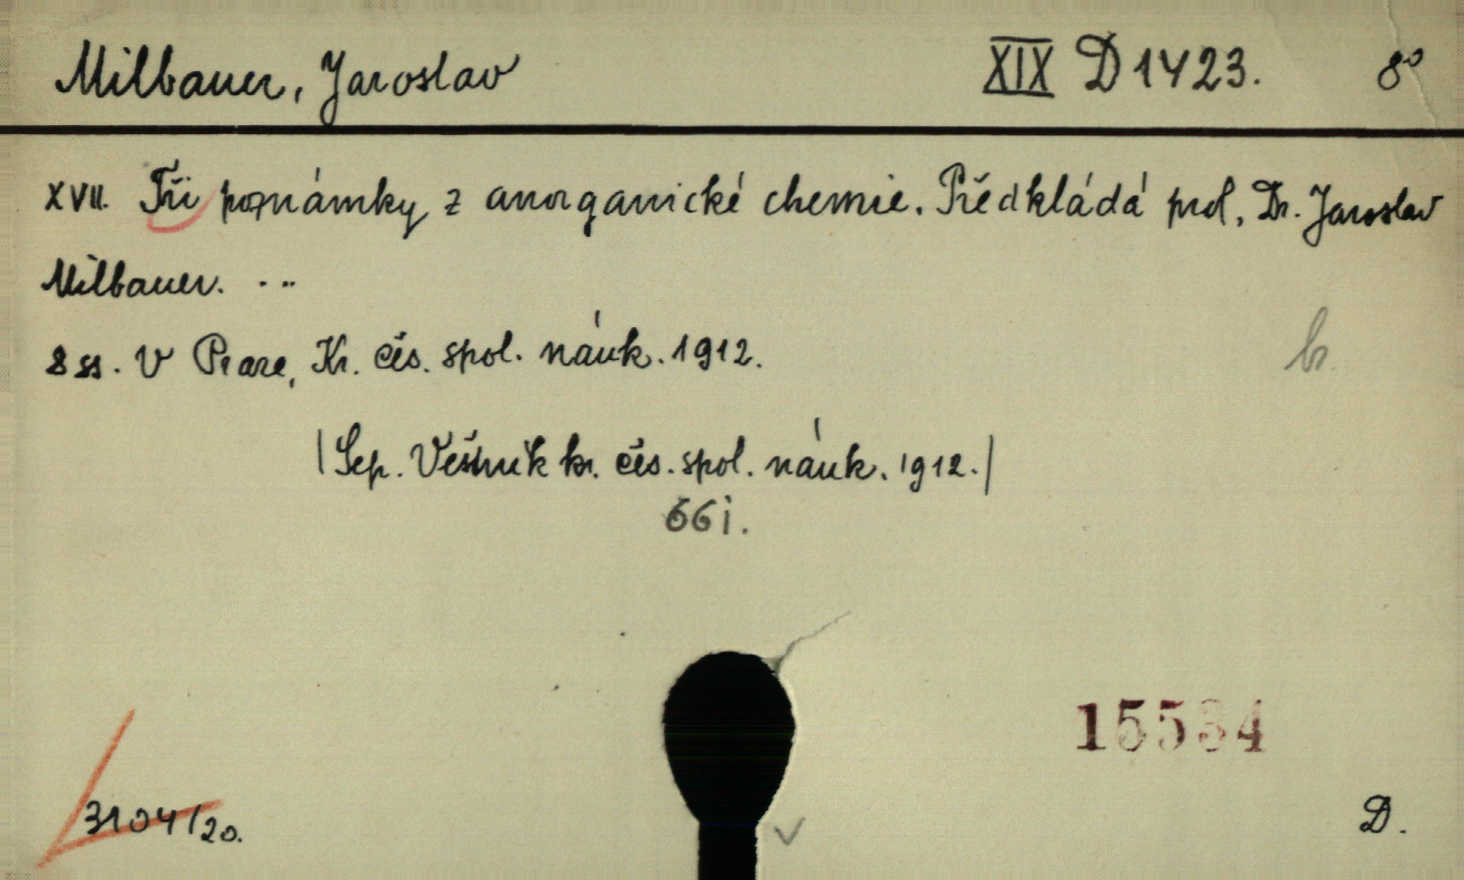 Milbauer, Jaroslav XIX D 1423. 8°
XVII. Tři poznámky z anorganické chemie. Předkládá prof. Dr. Jaroslav
Milbauer. ...
8 ss. V Praze, Kr. čes. spol. náuk. 1912.
br.
|Sep. Věstník kr. čes. spol. náuk. 1912.|
66 i.
15534
3104/20.
D.